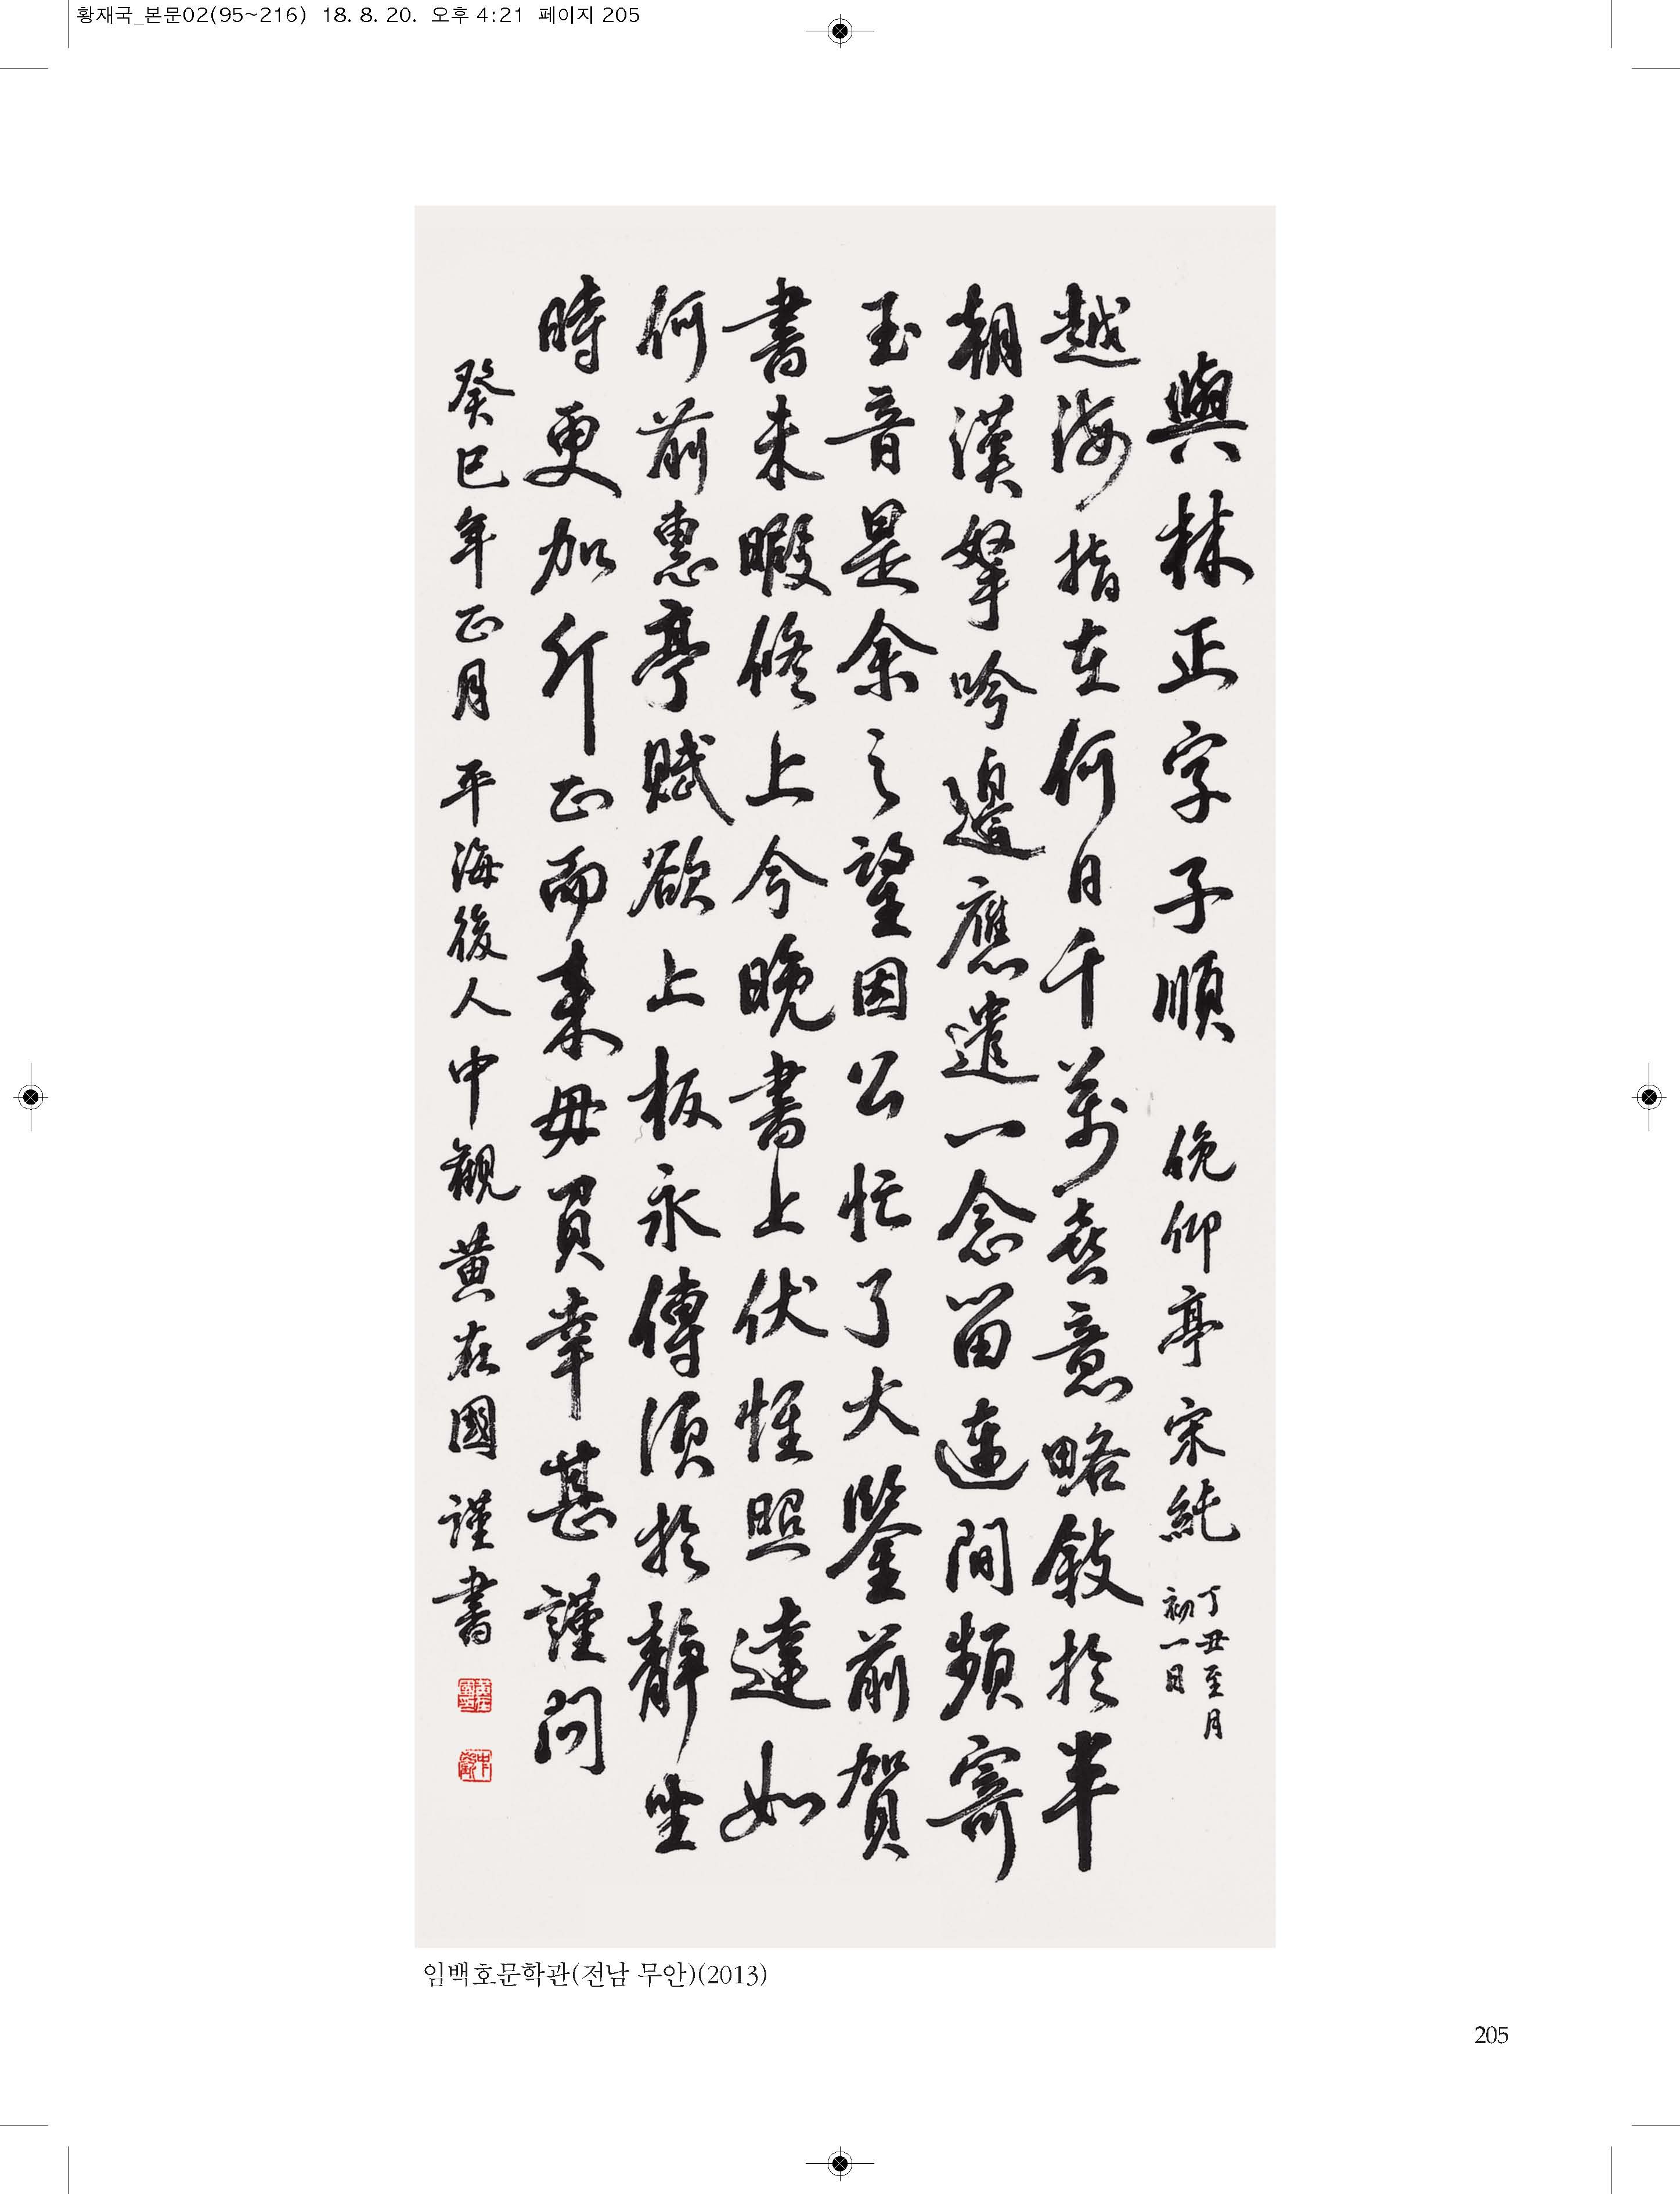 황재국_본문02(95~216) 18. 8. 20. 오후 4:21 페이지 205
與林正字子順 俛仰亭 宋純 丁丑至月
初一日
越海指在何日千萬無意略敍於半
朝漢拏吟邊應遣一念留連間頻寄
玉音是余之望因公忙了大鑒前賀
書未暇修上今晩書上伏惟照達如
何前惠亭賦欲上板永傳須於靜坐
時更加斤正而來毋買幸甚謹問
癸巳年正月 平海後人 中觀 黃在國 謹書
임백호문학관(전남 무안)(2013)
205